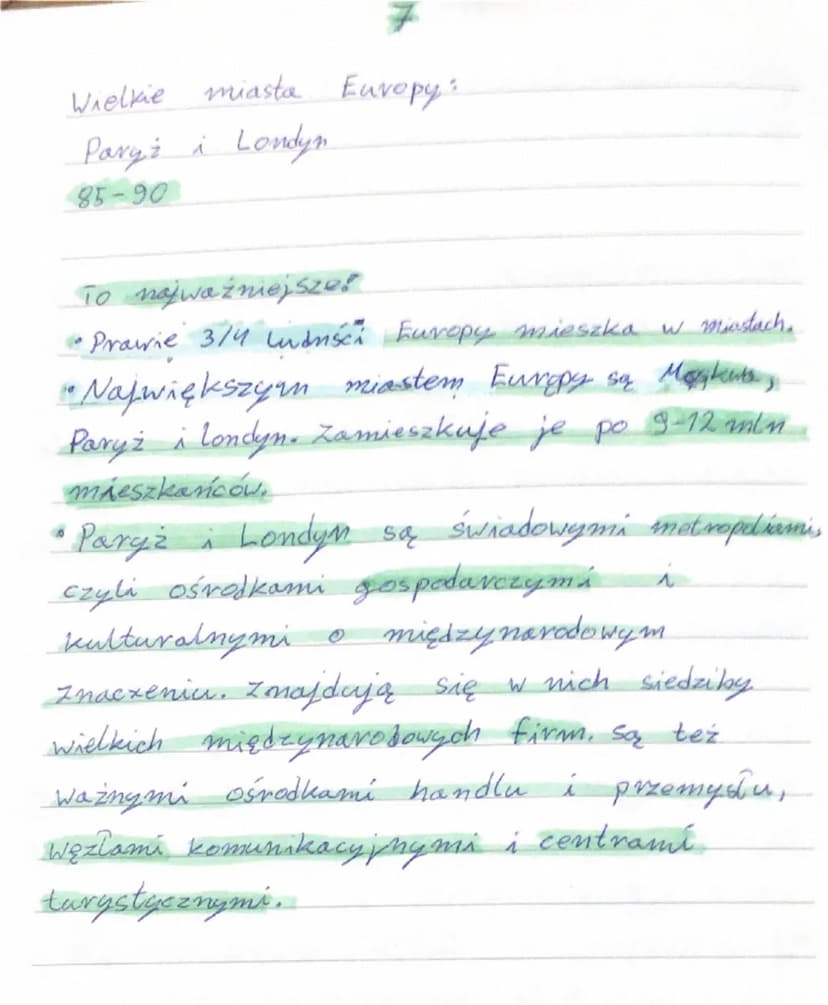 7
Wielkie miasta Europy:
Paryż i Londyn
85-90
To najważniejsze!
• Prawie 3/4 ludności Europy mieszka w miastach.
• Największym miastem Europy są Moskwa,
Paryż i londyn. Zamieszkuje je po 9-12 mln
mieszkańców.
• Paryż i Londyn są świadowymi metropoliami,
czyli ośrodkami gospodarczymi i
kulturalnymi o międzynarodowym
znaczeniu. Znajdują się w nich siedziby
wielkich międzynarodowych firm. są też
ważnymi ośrodkami handlu i przemysłu,
węzłami komunikacyjnymi i centrami
turystycznymi.